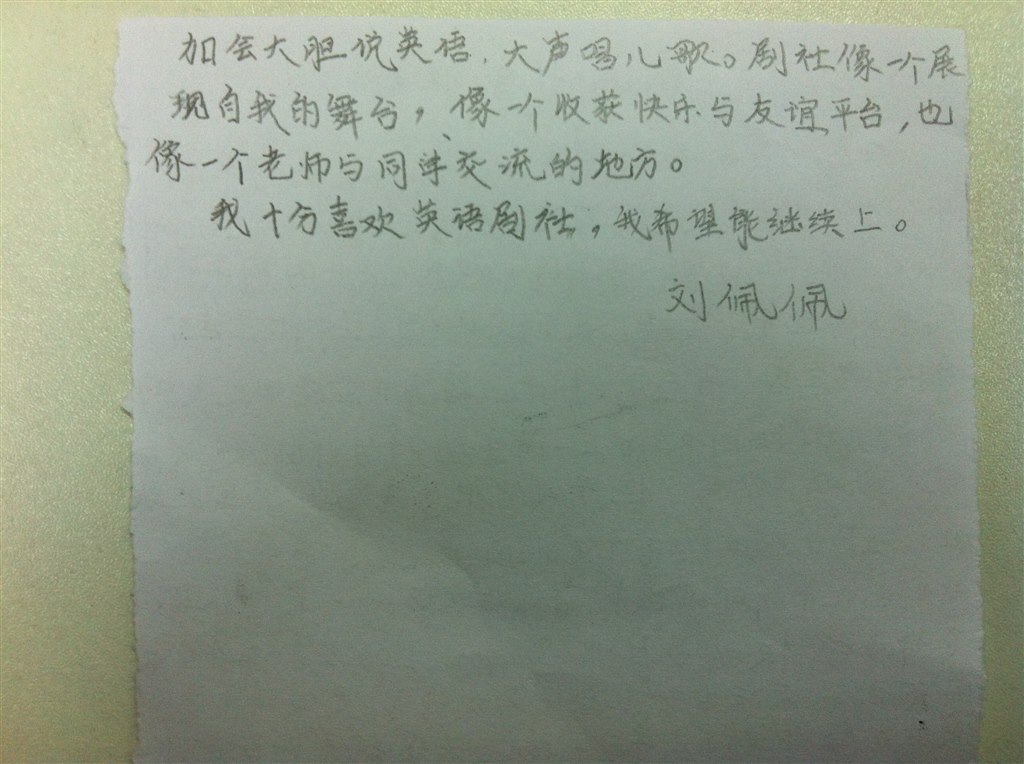 加会大胆说英语,大声唱儿歌。剧社像一个展
现自我的舞台,像一个收获快乐与友谊平台,也
像一个老师与同学交流的地方。
我十分喜欢英语剧社,我希望能继续上。
刘佩佩